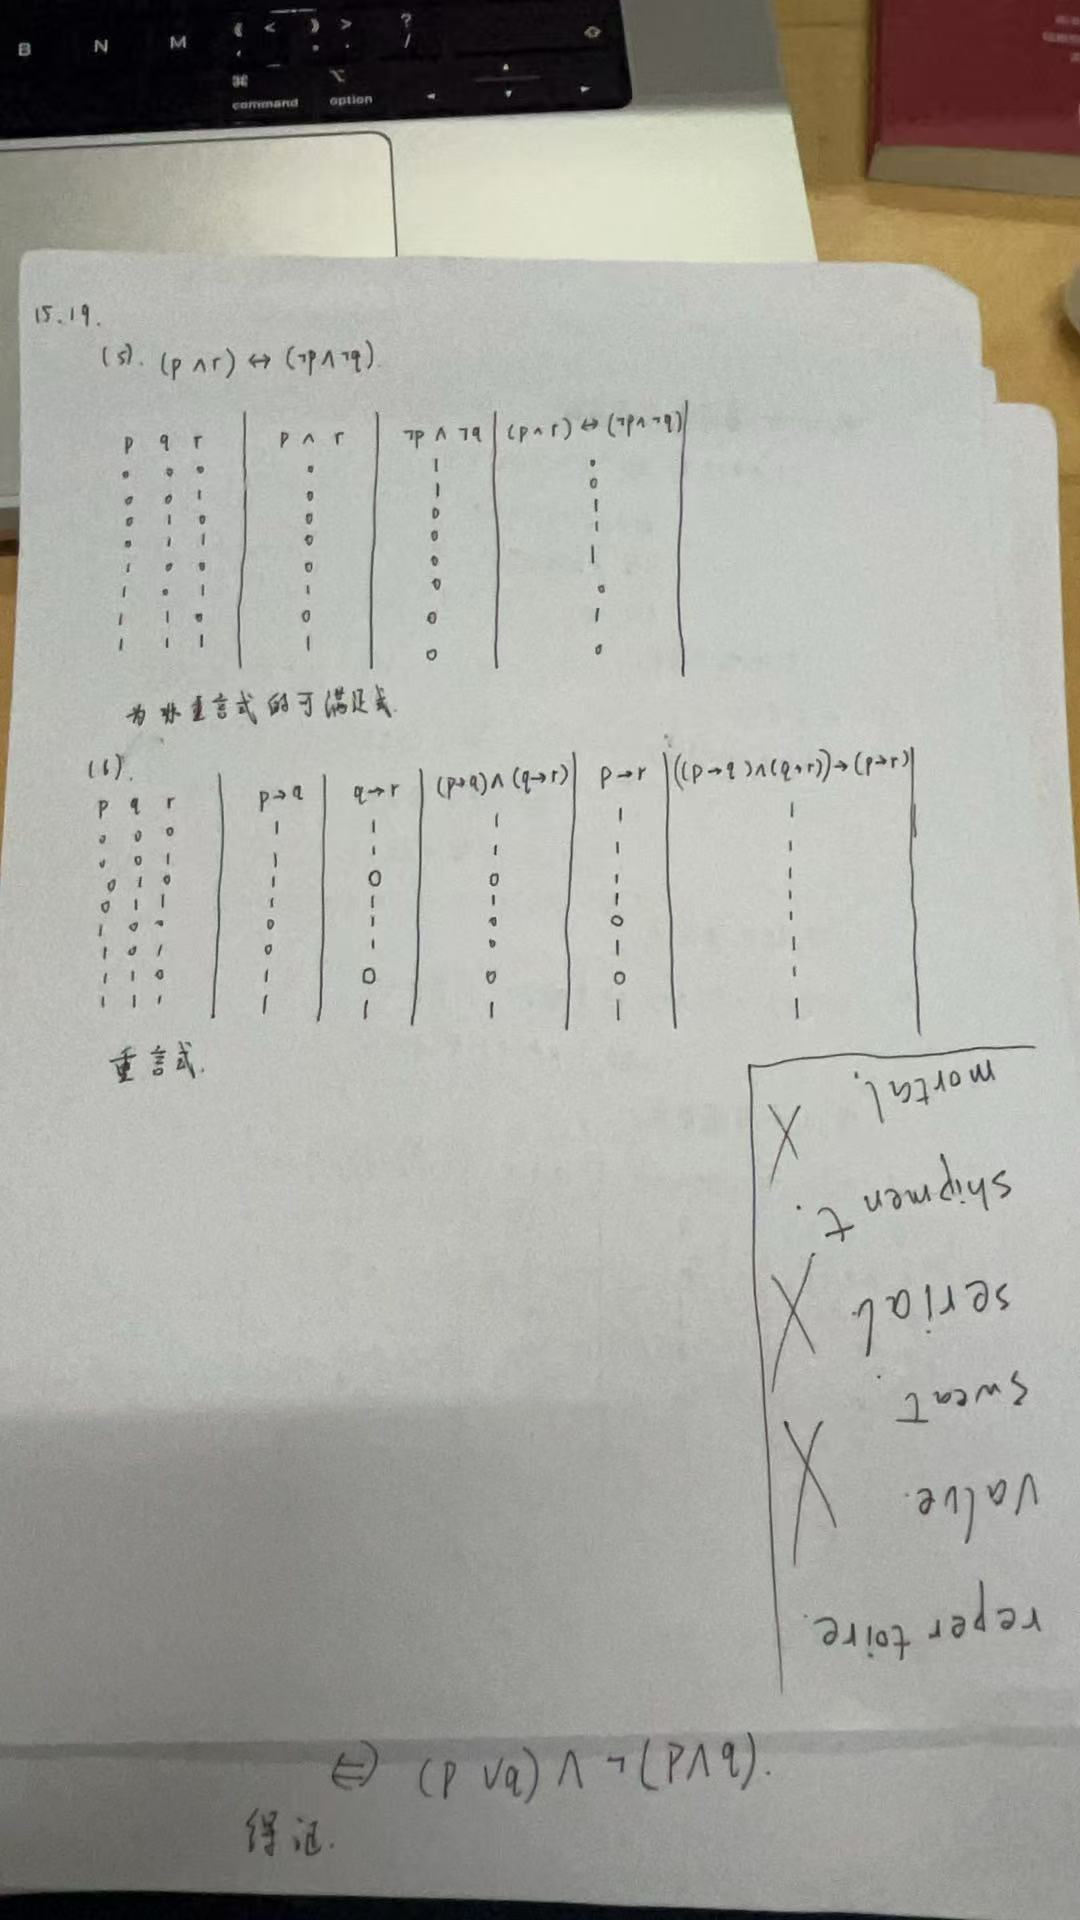 B N M < > ? /
⌘ command ⌥ option
15.19.
(5). (p∧r)↔(¬p∧¬q).
p q r | p∧r | ¬p∧¬q | (p∧r)↔(¬p∧¬q)
0 0 0 | 0 | 1 | 0
0 0 1 | 0 | 1 | 0
0 1 0 | 0 | 0 | 1
0 1 1 | 0 | 0 | 1
1 0 0 | 0 | 0 | 1
1 0 1 | 1 | 0 | 0
1 1 0 | 0 | 0 | 1
1 1 1 | 1 | 0 | 0
为非重言式的可满足式.
(6).
p q r | p→q | q→r | (p→q)∧(q→r) | p→r | ((p→q)∧(q→r))→(p→r)
0 0 0 | 1 | 1 | 1 | 1 | 1
0 0 1 | 1 | 1 | 1 | 1 | 1
0 1 0 | 1 | 0 | 0 | 1 | 1
0 1 1 | 1 | 1 | 1 | 1 | 1
1 0 0 | 0 | 1 | 0 | 0 | 1
1 0 1 | 0 | 1 | 0 | 1 | 1
1 1 0 | 1 | 0 | 0 | 0 | 1
1 1 1 | 1 | 1 | 1 | 1 | 1
重言式.
repertoire.
value.
sweat.
serial.
shipment.
mortal.
⇔ (p∨q)∧¬(p∧q).
得证.